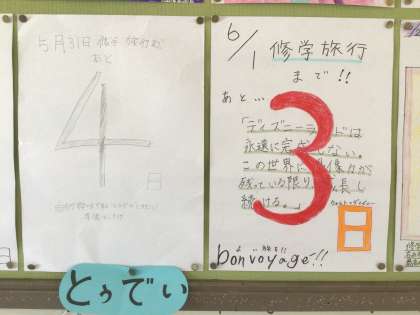 5月31日 修学旅行まで
あと
4
日
6/1
修学旅行
まで!!
あと…
3
日
「ディズニーランドは
永遠に完成しない。
この世界に想像力が
残っている限り、成長し
続ける。」
ウォルト・ディズニー
よい旅を!!
bon voyage!!
とぅでい